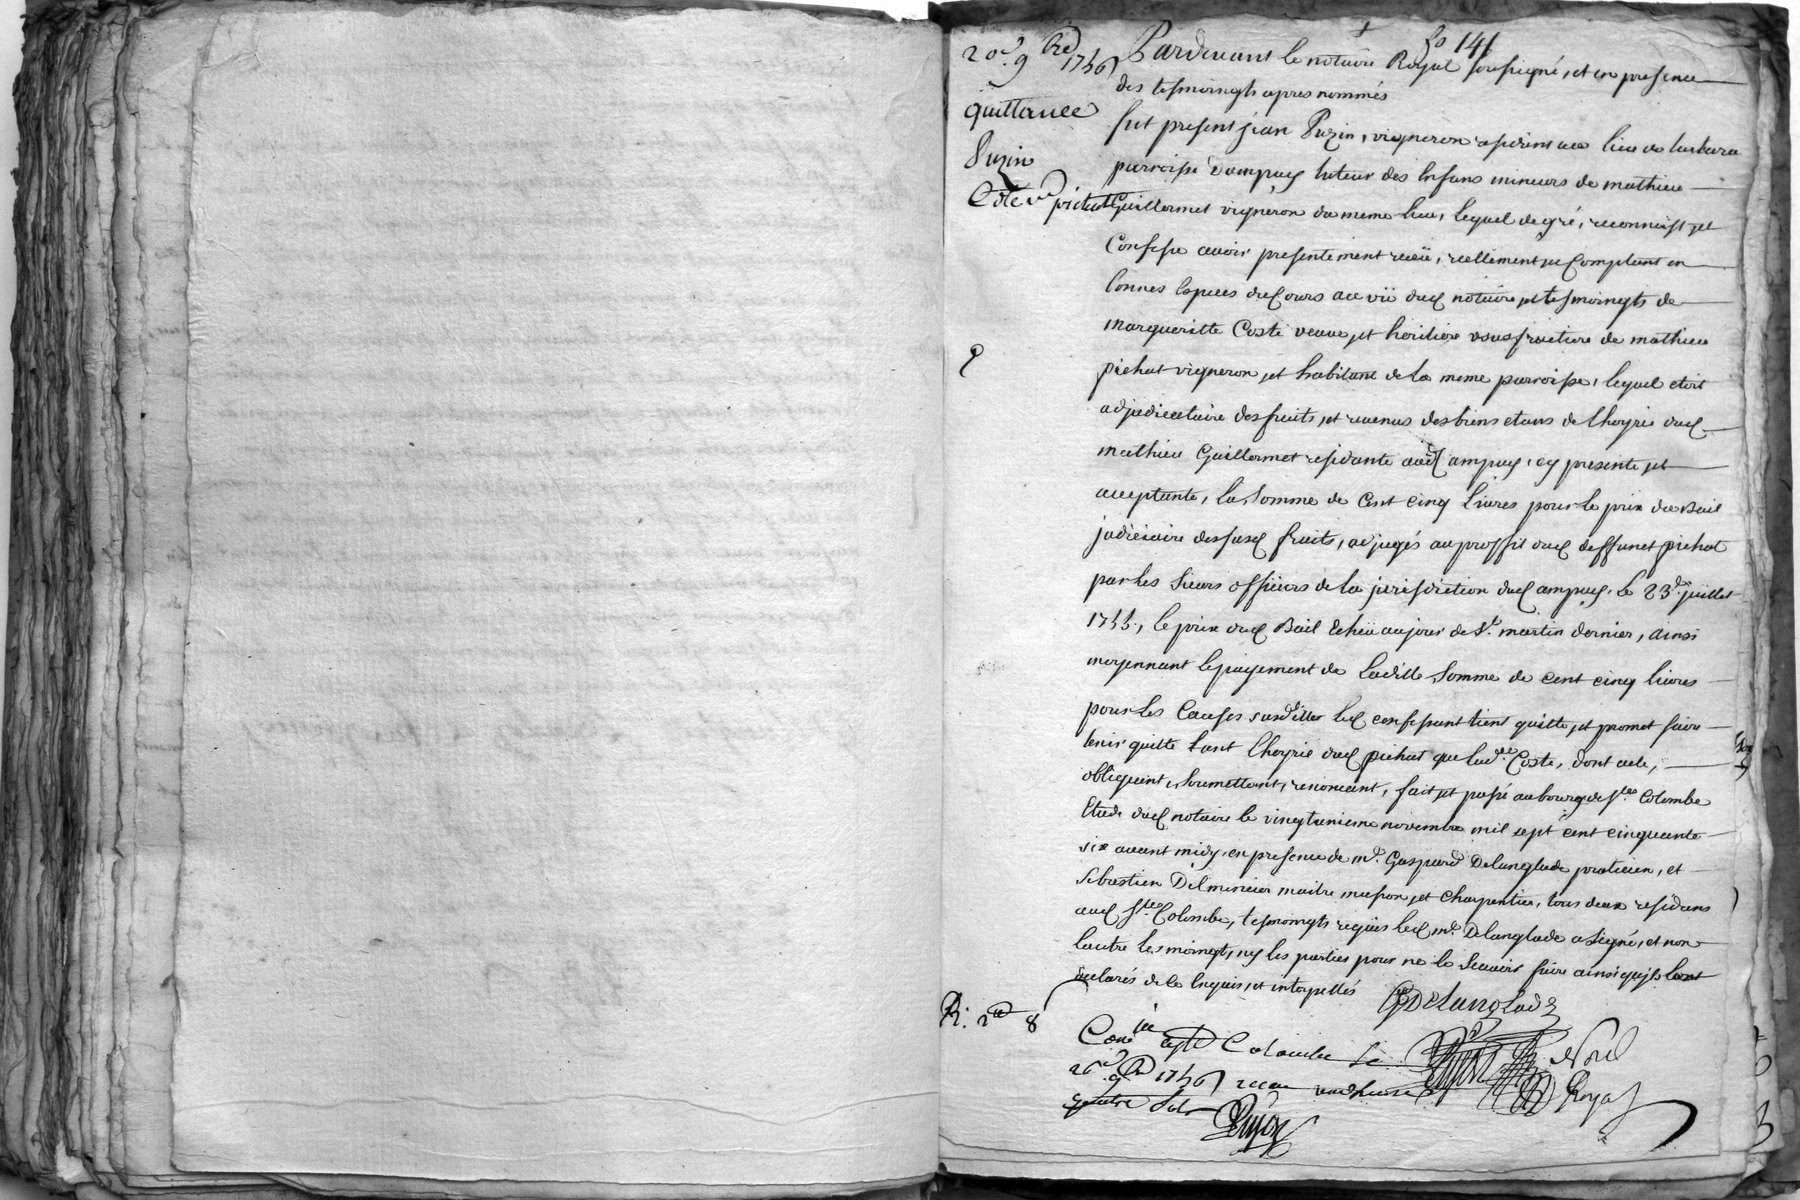 fo 141
20e 9bre 1756
quittance
Puzin
Coste ve pichat
Pardevant le notaire Royal soussigné, et en presence
des tesmoingts apres nommés
fut present jean Puzin, vigneron residant au lieu de
parroisse d'ampuis tuteur des Enfans mineurs de mathieu
Guillermet vigneron du meme lieu, lequel de gré, reconnoist et
Confesse avoir presentement recëu, reellement et Comptant en
bonnes Especes du Cours au vû dud notaire et tesmoingts de
margueritte Coste veuve et heritiere ususfruitiere de mathieu
pichat vigneron et habitant de la meme parroisse, lequel etoit
adjudicataire des fruits, et revenus des biens etans de l'hoyrie dud
mathieu Guillermet residante aud ampuis, cy presente et
acceptante, la somme de Cent cinq livres pour le prix du Bail
judiciaire des susd fruits, adjugés au proffit dud deffunct pichat
par les sieurs officiers de la jurisdiction dud ampuis, le 23e juillet
1755, le prix dud Bail Echëu au jour de St martin dernier, ainsi
moyennant le payement de Laditte somme de cent cinq livres
pour les Causes susdittes led confessant tient quitte, et promet faire
tenir quitte tant l'hoyrie dud pichat que lade Coste, dont acte,
obligeant, soumettant, renonceant, fait et passé au bourg de Ste Colombe
Etude dud notaire le vingtunieme novembre mil sept cent cinquante
six avant midy, en presence de mr Gaspard Delanglade praticien, et
sebastien Delminier maitre masson et charpentier, tous deux residans
aud Ste Colombe, tesmoingts requis led mr Delanglade a signé, et non
l'autre tesmoingt, ny les parties pour ne le scavoir faire ainsi qu'ils l'ont
declarés de ce Enquis, et interpellés
GDelanglade
R: 8
Colombe le
Nore
26e 9bre 1756 recu
Royal
sols